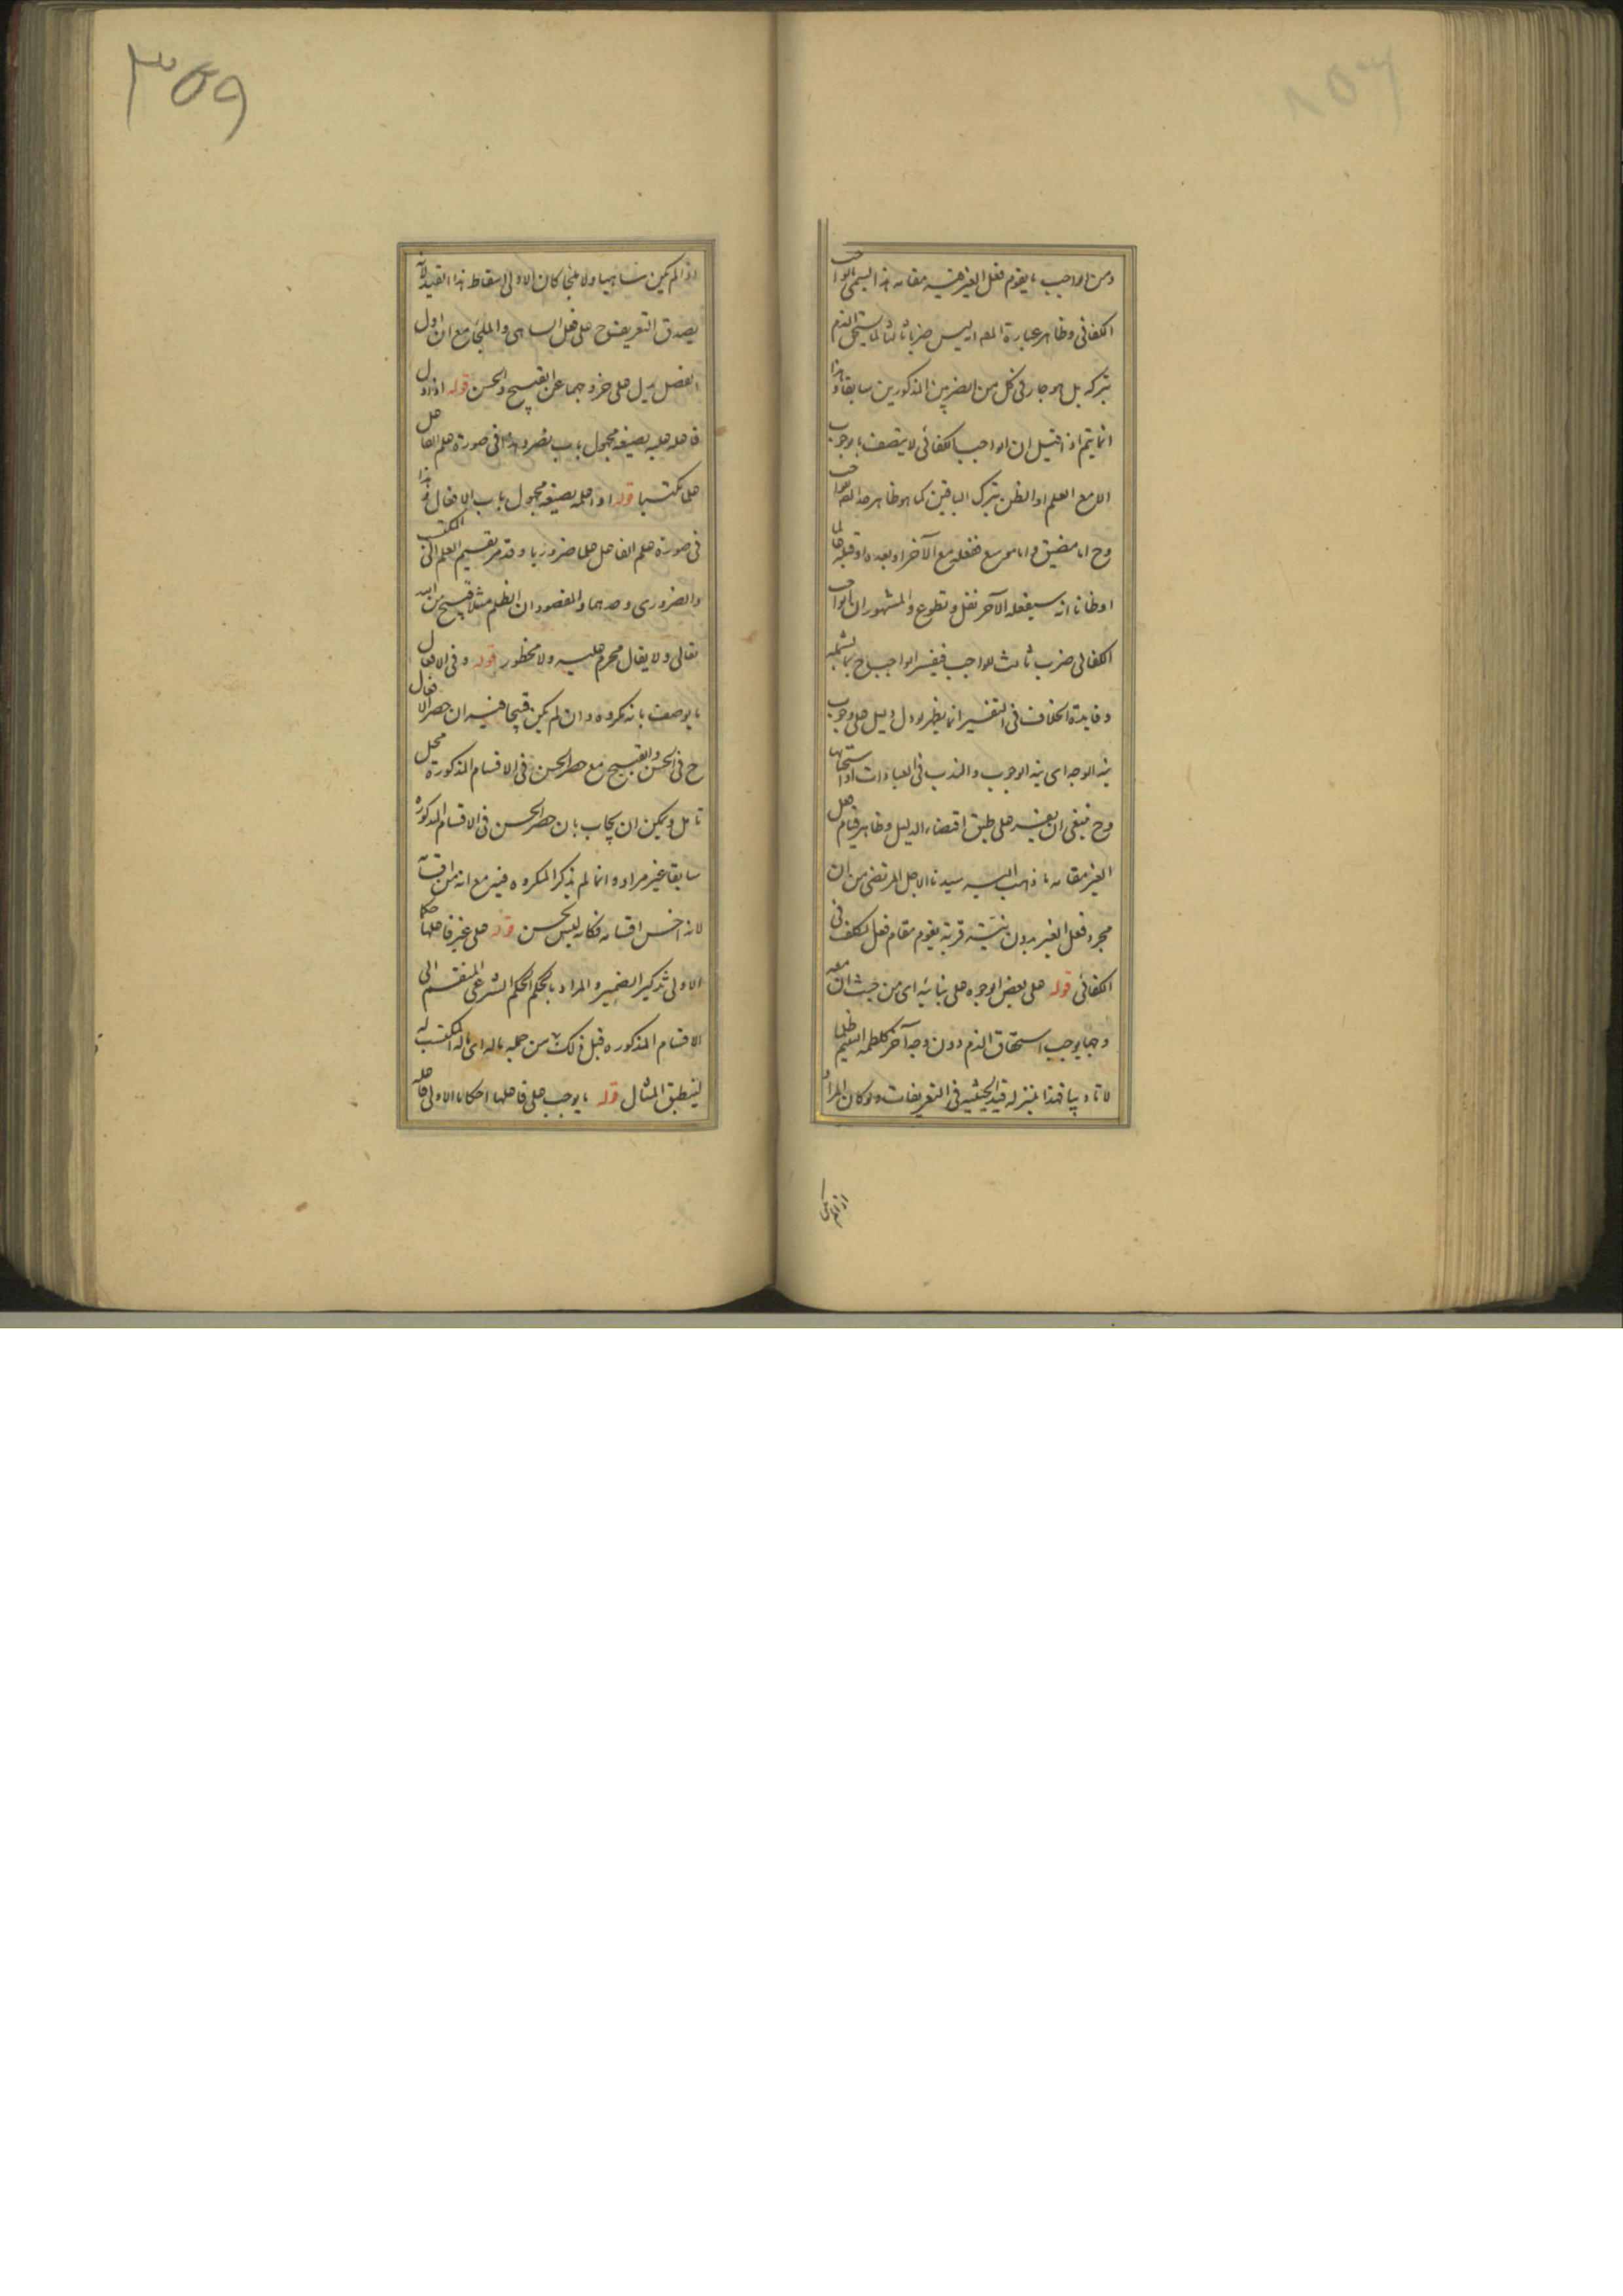 ومن الواجب ما يقوم فعل الغير فيه مقامه هذا يسمى الواجب
الكفائي وظاهر عبارة المصـ انه ليس ضربا ثالثا لما يستحق الذم
بتركه بل هو جار في كل من الضربين المذكورين سابقا وهذا
انما يتم اذا قيل ان الواجب الكفائي لا يتصف بالوجوب
الا مع العلم او الظن بترك الباقين كما هو ظاهر حد الواجب
وح اما مضيق واما موسع ففعله مع الآخر او بعده او قبله عالما
او ظانا انه سيفعله الآخر نفل وتطوع والمشهور ان الواجب
الكفائي ضرب ثالث للواجب فيفسر الواجب ح بما يشمله
وفايدة الخلاف في التفسير انما يظهر لو دل دليل على وجوب
نية الوجه اى نية الوجوب والندب في العبادات او استحبابها
وح ينبغي ان يفسر على طبق اقتضاء الدليل وظاهر قيام فعل
الغير مقامه ما ذهب اليه سيدنا الاجل المرتضى من ان
مجرد فعل الغير بدون نية قربة يقوم مقام فعل المكلف في
الكفائي قوله على بعض الوجوه على بنائية اى من حيث ان معه
وجها يوجب استحقاق الذم دون وجه آخر كلطمة اليتيم ظلما
لا تاديبا فهذا بمنزلة قيد الحيثية في التعريفات ولو كان المراد
اذا لم يكن
۳۵۸
۳۵۹
اذا لم يكن ساهيا ولا ملجأ كان الاولى اسقاط هذا القيد لانه
يصدق التعريف ح على فعل الساهى والملجأ مع ان اول
الفصل يدل على خروجهما عن القبيح والحسن قوله اذا دل
فاعله عليه بصيغة مجهول باب نصر وهذا في صورة علم الفاعل
علما مكتسبا قوله او اعلمه بصيغة مجهول باب الافعال وهذا
في صورة علم الفاعل علما ضروريا وقد مر تقسيم العلم الى المكتسب
والضروري وحدهما والمقصود ان الظلم مثلا قبيح من الله
تعالى ولا يقال محرم عليه ولا محظور قوله وفي الافعال
ما يوصف بانه مكروه وان لم يكن قبيحا فيه ان حصر الافعال
ح في الحسن والقبيح مع حصر الحسن في الاقسام المذكورة محل
تامل ويمكن ان يجاب بان حصر الحسن في الاقسام المذكورة
سابقا غير مراد وانما لم يذكر المكروه فيه مع انه من اقسامه
لانه اخس اقسامه فكانه ليس بحسن قوله على غير فاعلها حكما
الاولى تذكير الضمير والمراد بالحكم الحكم الشرعى المنقسم الى
الاقسام المذكورة قبل ذلك من جملة ماله اى ماله المكتسب له
لينطبق المثال قوله ما يوجب على فاعلها احكاما الاولى فاعله